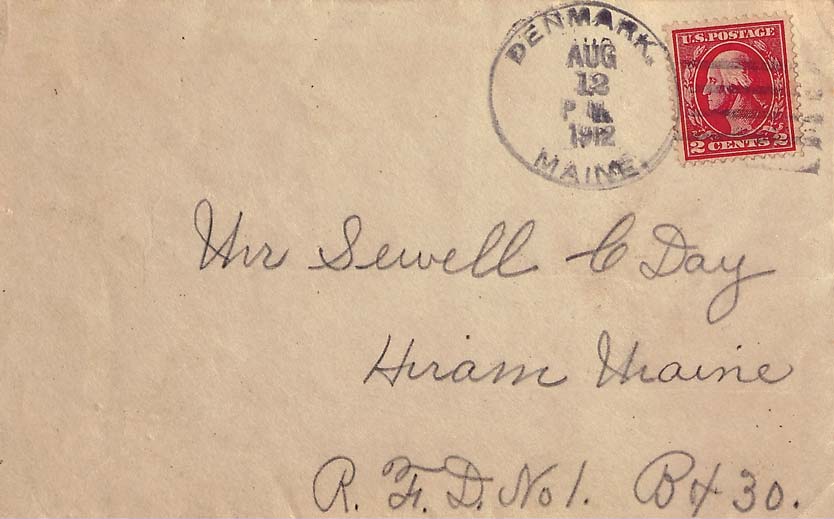 DENMARK.
AUG
12
P M.
1912
MAINE.
U.S. POSTAGE
2 CENTS 2
Mr Sewell C Day
Hiram Maine
R. F. D. No 1. Bx 30.